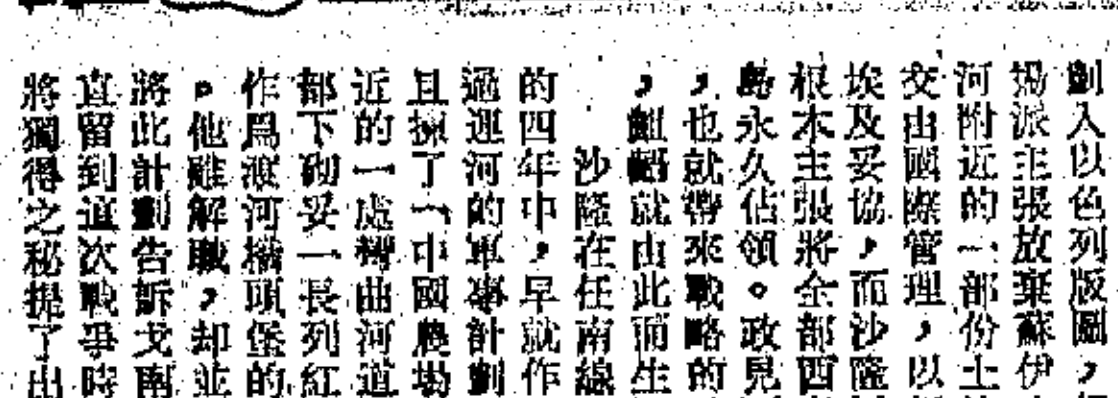 劃入以色列版圖，
揚派主張放棄蘇伊
河附近的一部份土
交由國際管理，以
埃及妥協，而沙隆
根本主張將全部西
島永久佔領。政見
，也就帶來戰略的
，齟齬就由此而生
沙隆在任南線
的四年中，早就作
過運河的軍事計劃
且揀了「中國農場
近的一處彎曲河道
都下砌妥一長列紅
作為渡河橋頭堡的
。他雖解職，却並
將此計劃告訴戈南
直留到這次戰爭時
將獨得之秘提了出